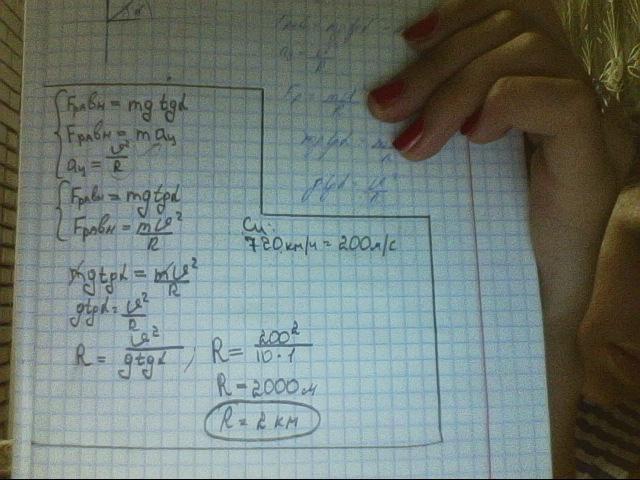 α
Fравн = mg tgα
Fравн = m aц
aц = v²/R
Fравн = mg tgα
Fравн = mv²/R
Си:
720 км/ч = 200 м/с
mg tgα = mv²/R
g tgα = v²/R
R = v²/g tgα, R = 200²/10·1
R = 2000 м
R = 2 км